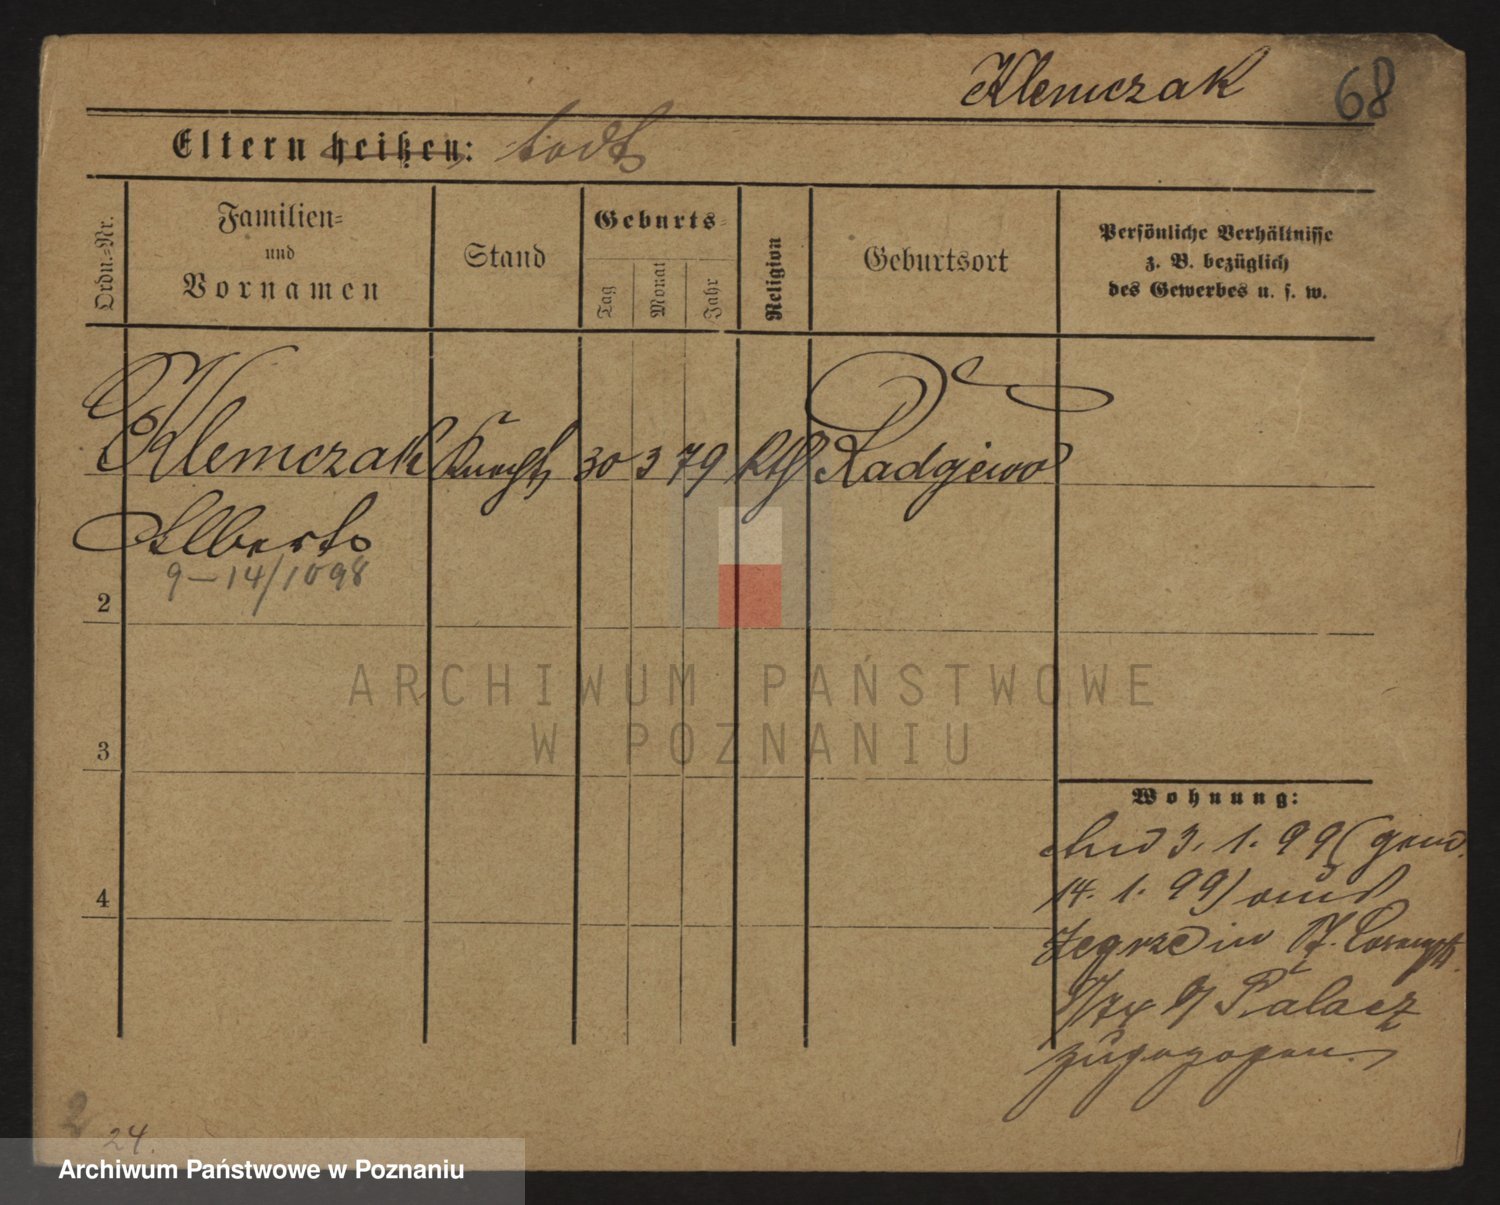 Klemczak 68
Eltern heißen: todt
Ordn.-Nr.
Familien-
und
Vornamen
Stand
Geburts-
Tag
Monat
Jahr
Religion
Geburtsort
Persönliche Verhältnisse
z. B. bezüglich
des Gewerbes u. s. w.
Klemczak Knecht 30 3 79 kth Radgewo
Albert
9-14/10 98
2
3
4
Wohnung:
3. 1. 99 (gem.
14. 1. 99) aus
Zegrze in St.
Palacz
zugezogen.
2
24.
ARCHIWUM PAŃSTWOWE
W POZNANIU
Archiwum Państwowe w Poznaniu